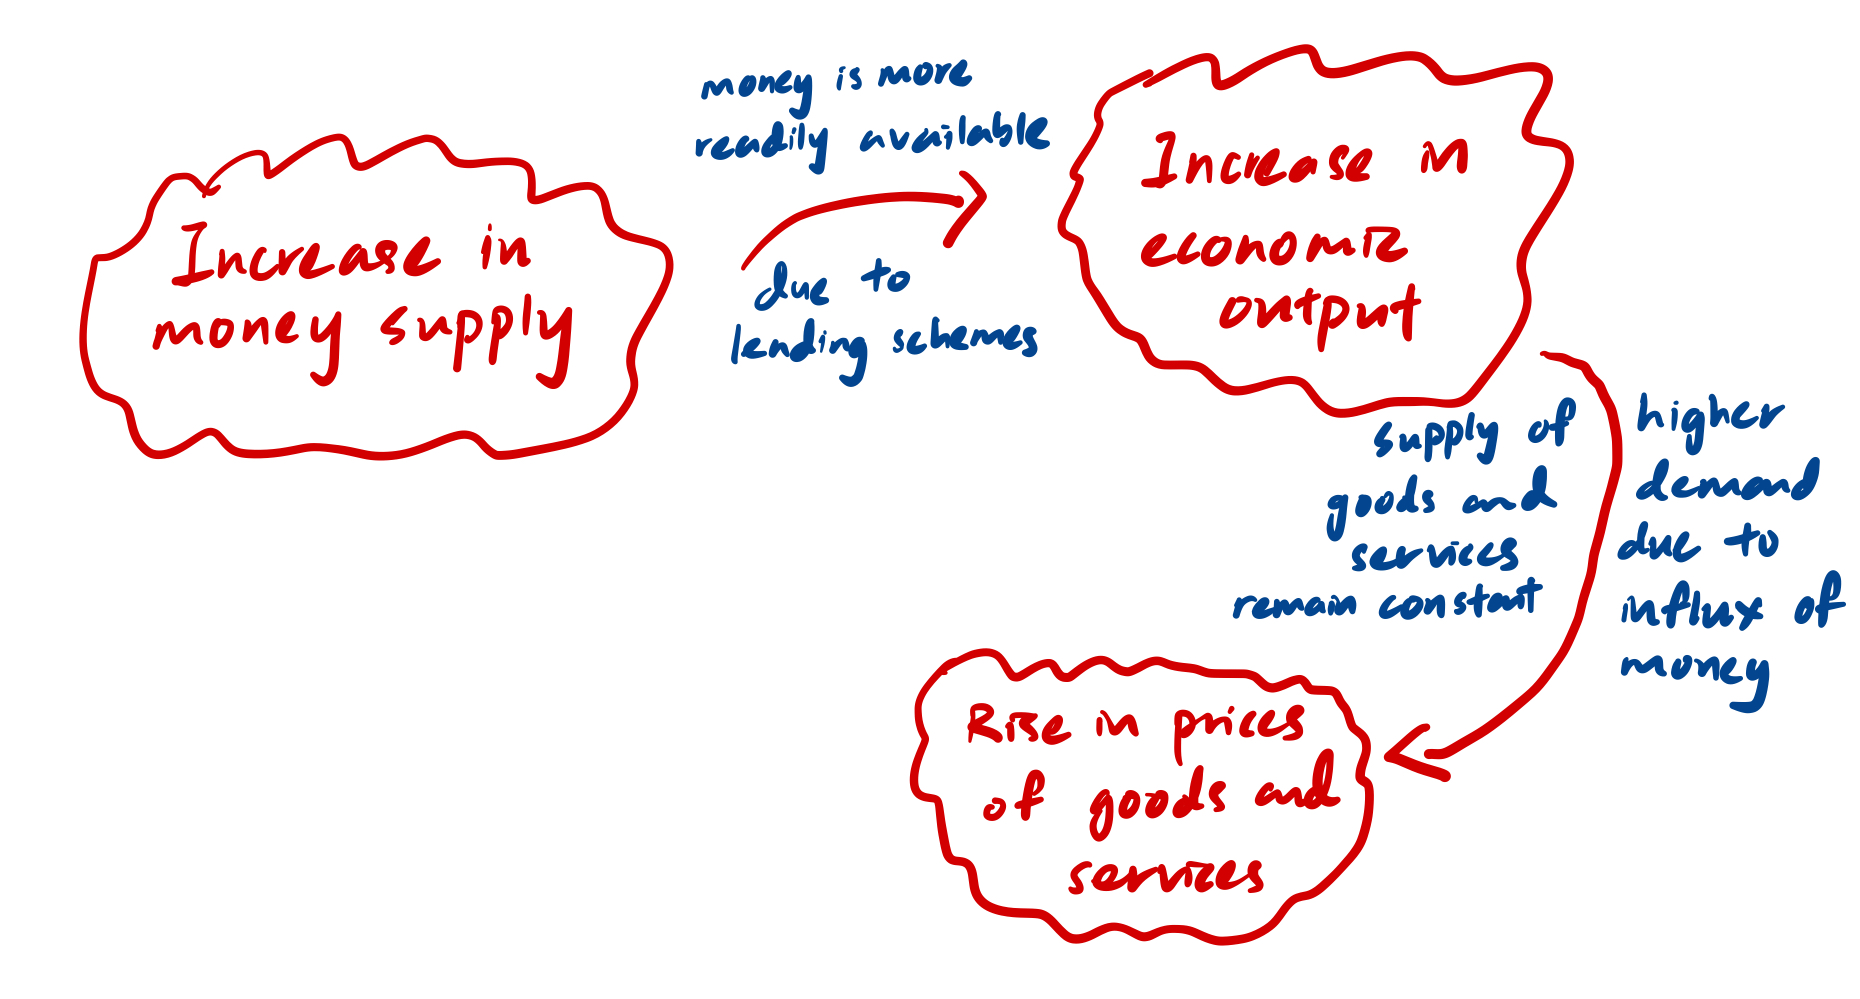 Increase in
money supply
money is more
readily available
due to
lending schemes
Increase in
economic
output
supply of
goods and
services
remain constant
higher
demand
due to
influx of
money
Rise in prices
of goods and
services